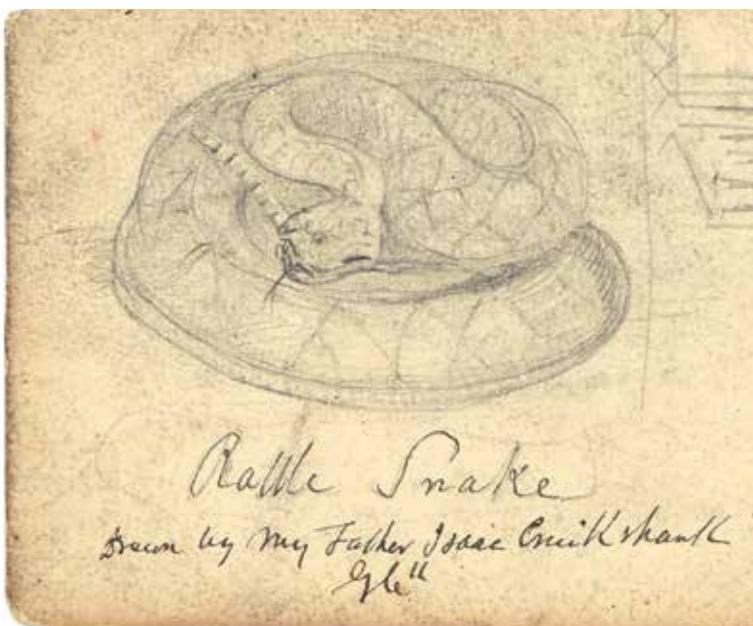 Rattle Snake
Drawn by my Father Isaac Cruikshank